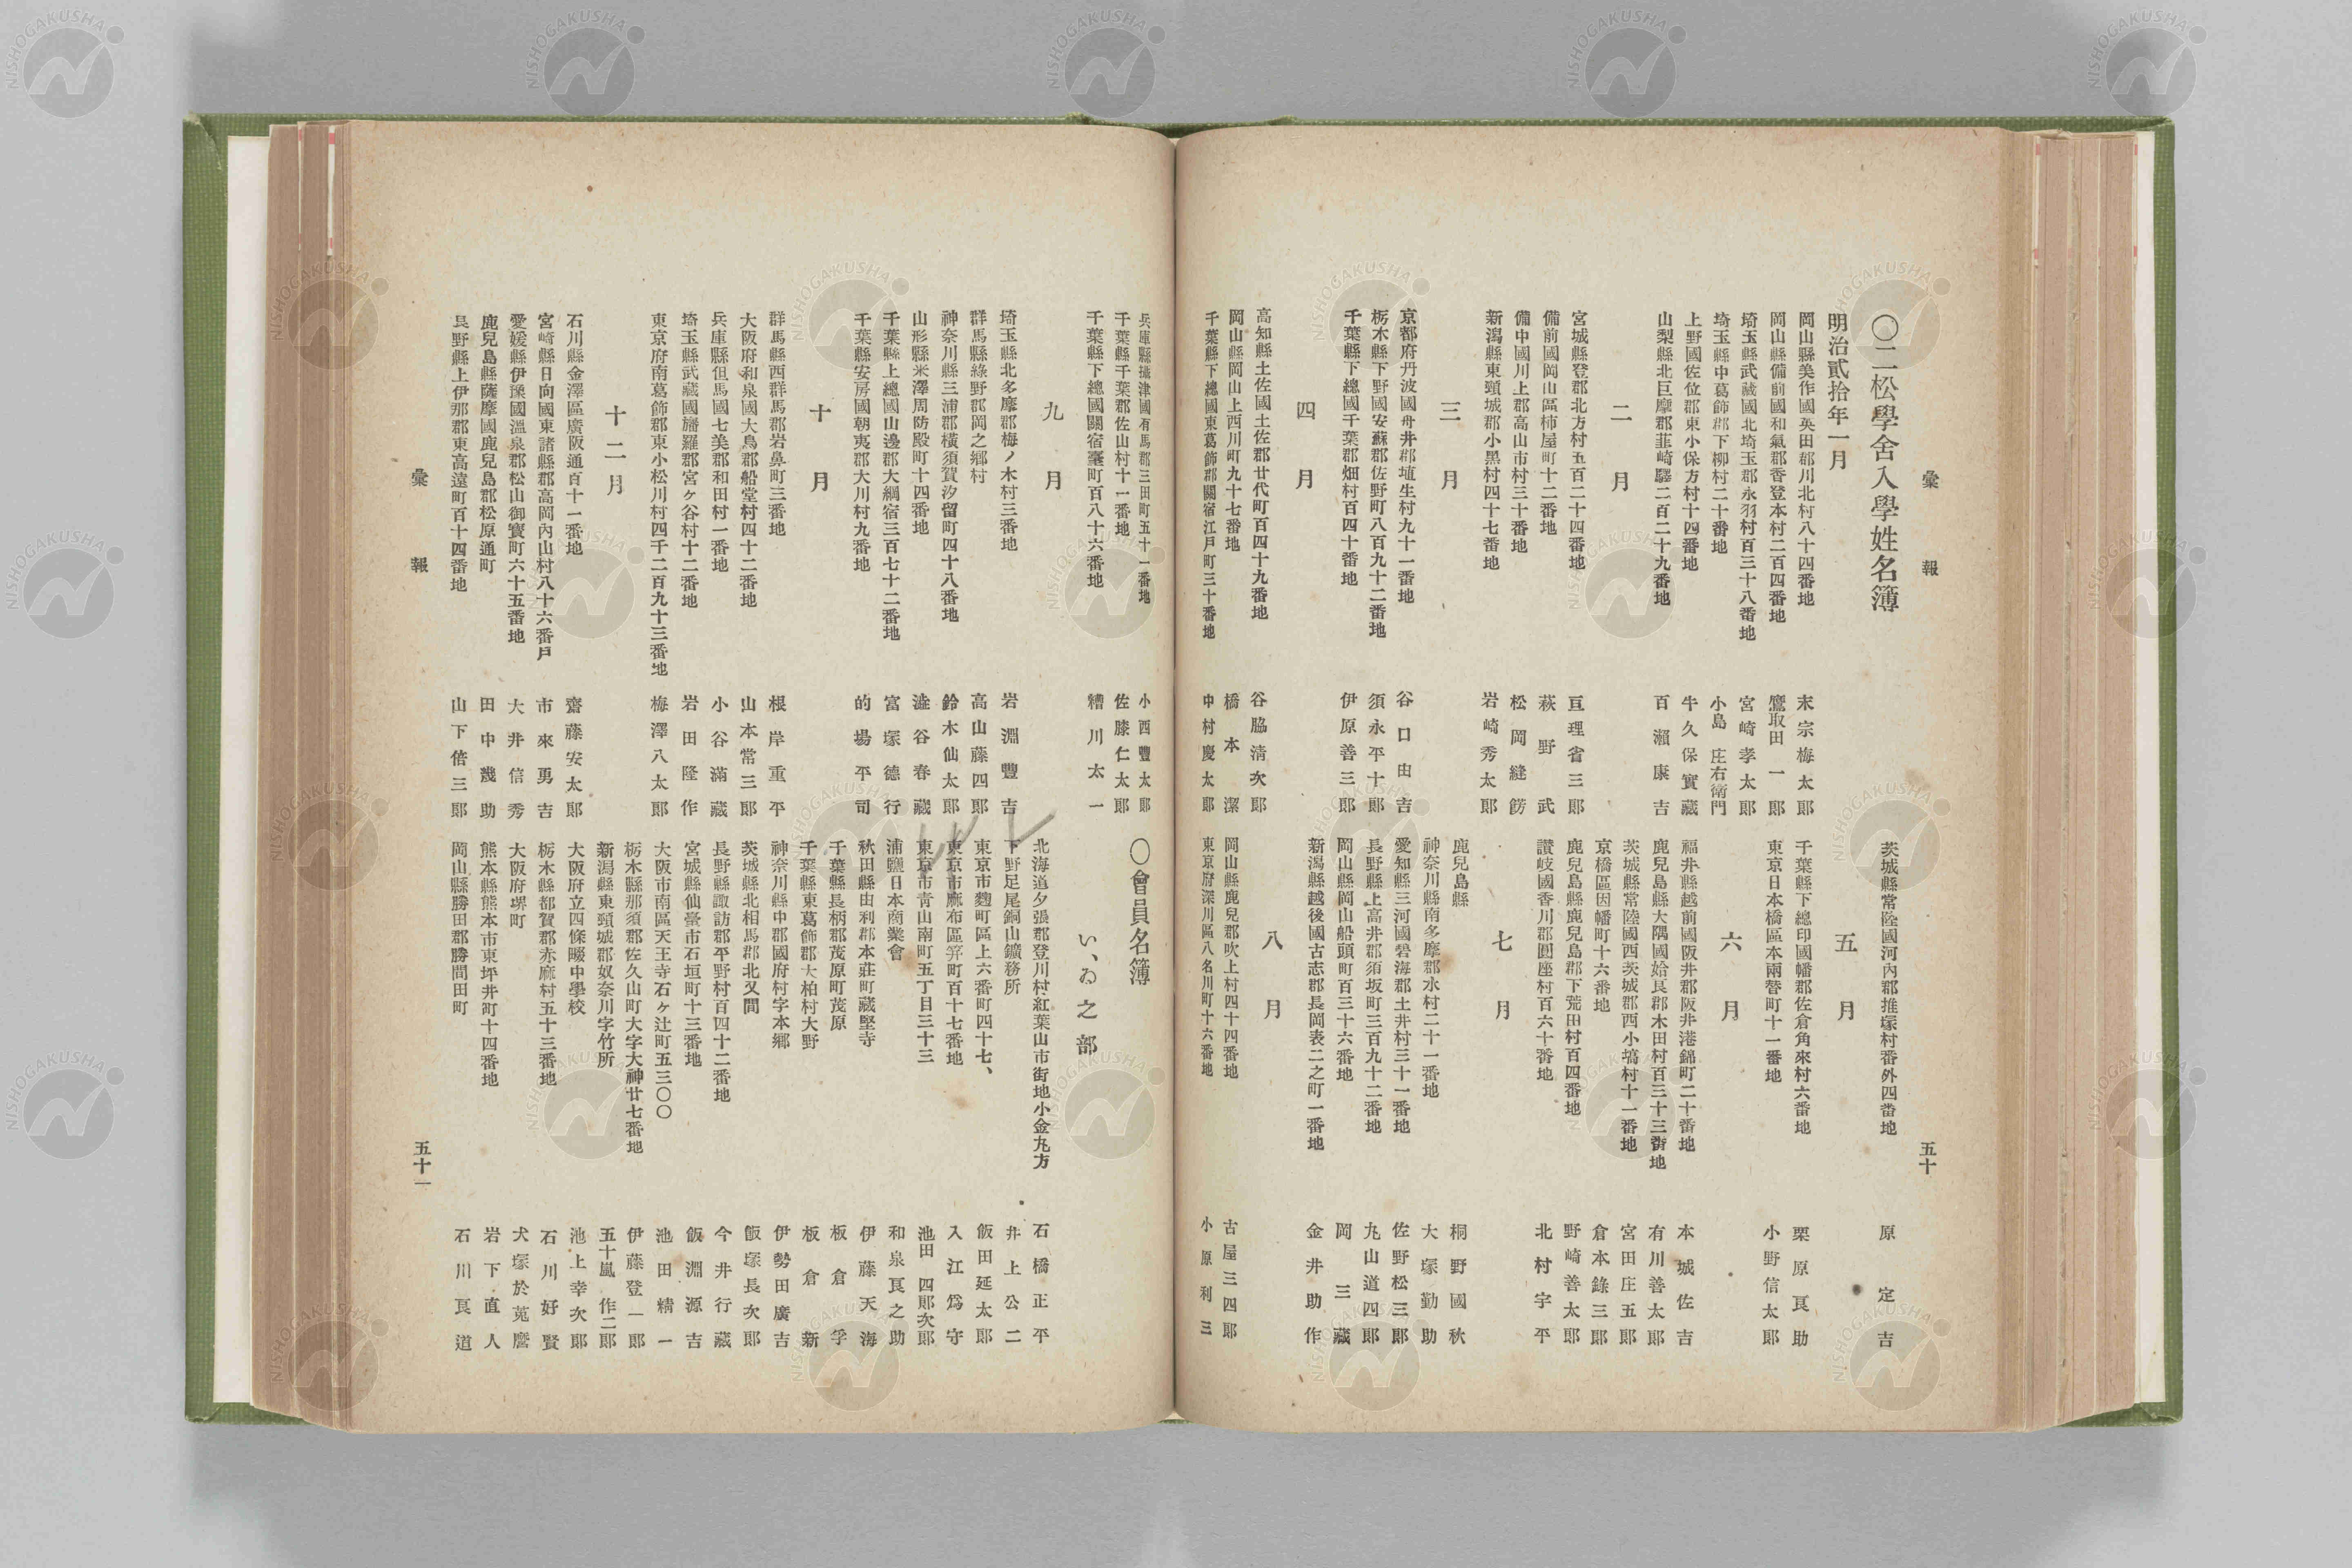 彙報
五十
〇二松學舍入學姓名簿
明治貳拾年一月
岡山縣美作國英田郡川北村八十四番地 末宗梅太郎
岡山縣備前國和氣郡香登本村二百四番地 鷹取田一郎
埼玉縣武藏國北埼玉郡永羽村百三十八番地 宮崎孝太郎
埼玉縣中葛飾郡下柳村二十番地 小島庄右衛門
上野國佐位郡東小保方村十四番地 牛久保實藏
山梨縣北巨摩郡韮崎驛二百二十九番地 百瀨康吉
二月
宮城縣登郡北方村五百二十四番地 亘理省三郎
備前國岡山區柿屋町十二番地 萩野武
備中國川上郡高山市村三十番地 松岡縫
新潟縣東頸城郡小黑村四十七番地 岩崎秀太郎
三月
京都府丹波國舟井郡埴生村九十一番地 谷口由吉
栃木縣下野國安蘇郡佐野町八百九十二番地 須永平十郎
千葉縣下總國千葉郡畑村百四十番地 伊原善三郎
四月
高知縣土佐國土佐郡廿代町百四十九番地 谷脇淸次郎
岡山縣岡山上西川町九十七番地 橋本潔
千葉縣下總國東葛飾郡關宿江戸町三十番地 中村慶太郎
茨城縣常陸國河內郡推塚村番外四番地 原定吉
五月
千葉縣下總印國幡郡佐倉角來村六番地 栗原良助
東京日本橋區本兩替町十一番地 小野信太郎
六月
福井縣越前國阪井郡阪井港錦町二十番地 本城佐吉
鹿兒島縣大隅國姶良郡木田村百三十三番地 有川善太郎
茨城縣常陸國西茨城郡西小塙村十一番地 宮田庄五郎
京橋區因幡町十六番地 倉本錄三郎
鹿兒島縣鹿兒島郡下荒田村百四番地 野崎善太郎
讃岐國香川郡圓座村百六十番地 北村宇平
七月
鹿兒島縣 桐野國秋
神奈川縣南多摩郡水村二十一番地 大塚勤助
愛知縣三河國碧海郡土井村三十一番地 佐野松三郎
長野縣上高井郡須坂町三百九十二番地 丸山道四郎
岡山縣岡山船頭町百三十六番地 岡三藏
新潟縣越後國古志郡長岡表二之町一番地 金井助作
八月
岡山縣鹿兒郡吹上村四十四番地 古屋三四郎
東京府深川區八名川町十六番地 小原利三
兵庫縣攝津國有馬郡三田町五十一番地 小西豐太郎
千葉縣千葉郡佐山村十一番地 佐膝仁太郎
千葉縣下總國關宿臺町百八十六番地 糟川太一
九月
埼玉縣北多摩郡梅ノ木村三番地 岩淵豐吉
群馬縣綠野郡岡之鄕村 高山藤四郎
神奈川縣三浦郡橫須賀汐留町四十八番地 鈴木仙太郎
山形縣米澤周防殿町十四番地 澁谷春藏
千葉縣上總國山邊郡大綱宿三百七十二番地 富塚德行
千葉縣安房國朝夷郡大川村九番地 的場平司
十月
群馬縣西群馬郡岩鼻町三番地 根岸重平
大阪府和泉國大鳥郡船堂村四十二番地 山本常三郎
兵庫縣但馬國七美郡和田村一番地 小谷滿藏
埼玉縣武藏國旛羅郡宮ケ谷村十二番地 岩田隆作
東京府南葛飾郡東小松川村四千二百九十三番地 梅澤八太郎
十二月
石川縣金澤區廣阪通百十一番地 齋藤安太郎
宮崎縣日向國東諸縣郡高岡內山村八十六番戶 市來勇吉
愛媛縣伊豫國溫泉郡松山御寶町六十五番地 大井信秀
鹿兒島縣薩摩國鹿兒島郡松原通町 田中幾助
長野縣上伊那郡東高遠町百十四番地 山下倍三郎
〇會員名簿
い、ゐ之部
北海道夕張郡登川村紅葉山市街地小金丸方 石橋正平
下野足尾銅山鑛務所 井上公二
東京市麴町區上六番町四十七、 飯田延太郎
東京市麻布區笄町百十七番地 入江爲守
東京市靑山南町五丁目三十三 池田四郎次郎
浦鹽日本商業會 和泉良之助
秋田縣由利郡本莊町藏堅寺 伊藤天海
千葉縣長柄郡茂原町茂原 板倉孚
千葉縣東葛飾郡大柏村大野 板倉新
神奈川縣中郡國府村字本鄕 伊勢田廣吉
茨城縣北相馬郡北又間 飯塚長次郎
長野縣諏訪郡平野村百四十二番地 今井行藏
宮城縣仙臺市石垣町十三番地 飯淵源吉
大阪市南區天王寺石ヶ辻町五三〇〇 池田精一
栃木縣那須郡佐久山町大字大神廿七番地 伊藤登一郎
新潟縣東頸城郡奴奈川字竹所 五十嵐作二郎
大阪府立四條畷中學校 池上幸次郎
栃木縣都賀郡赤麻村五十三番地 石川好賢
大阪府堺町 犬塚於菟麿
熊本縣熊本市東坪井町十四番地 岩下直人
岡山縣勝田郡勝間田町 石川良道
彙報
五十一